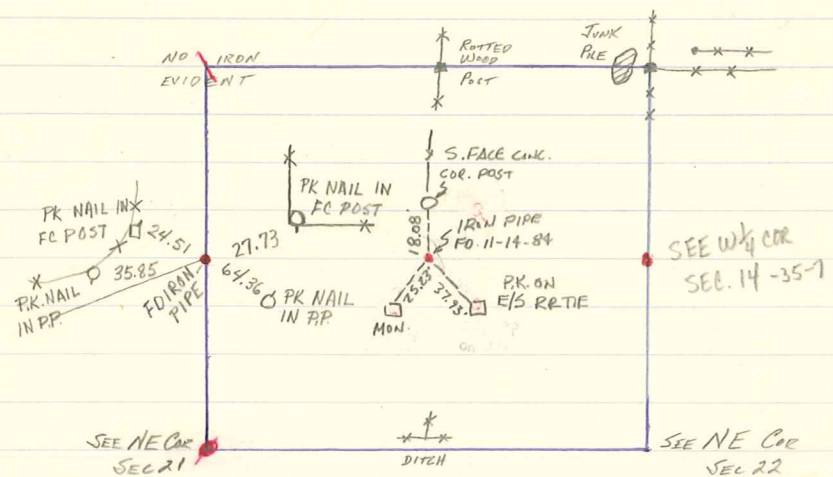 NO IRON
EVIDENT
ROTTED
WOOD
POST
JUNK
PILE
S. FACE CONC.
COR. POST
PK NAIL IN
FC POST
PK NAIL IN
FC POST
24.51
35.85
P.K. NAIL
IN P.P.
FD IRON
PIPE
27.73
64.36
PK NAIL
IN P.P.
18.08'
IRON PIPE
FD. 11-14-84
25.23'
37.93'
MON.
P.K. ON
E/S RR TIE
SEE W 1/4 COR
SEC. 14 -35-7
SEE NE COR
SEC 21
DITCH
SEE NE COR
SEC 22